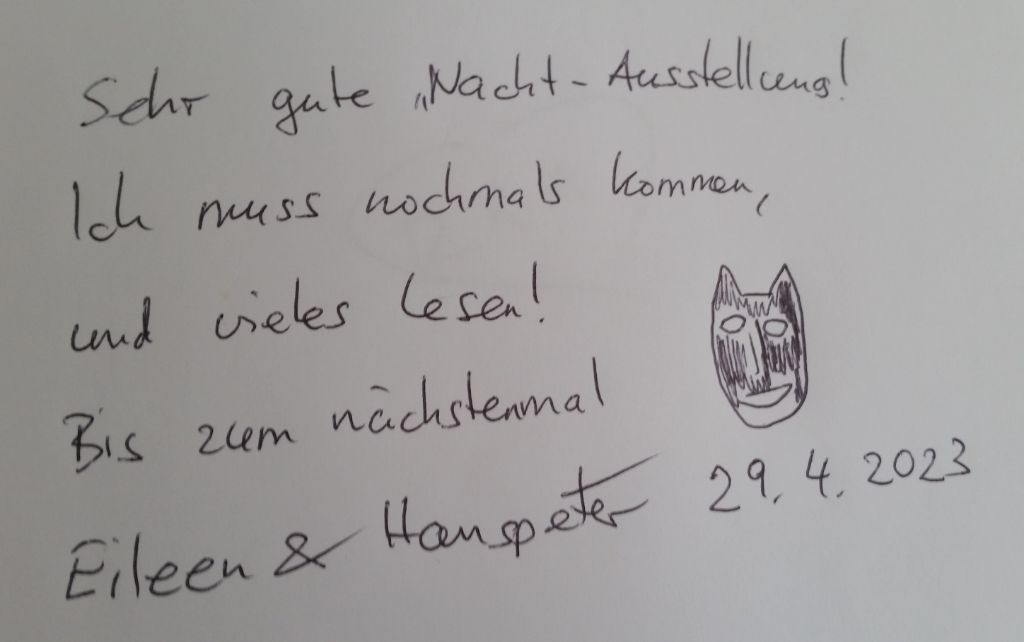 Sehr gute „Nacht-Ausstellung!
Ich muss nochmals kommen,
und vieles lesen!
Bis zum nächstenmal
Eileen & Hanspeter 29.4.2023